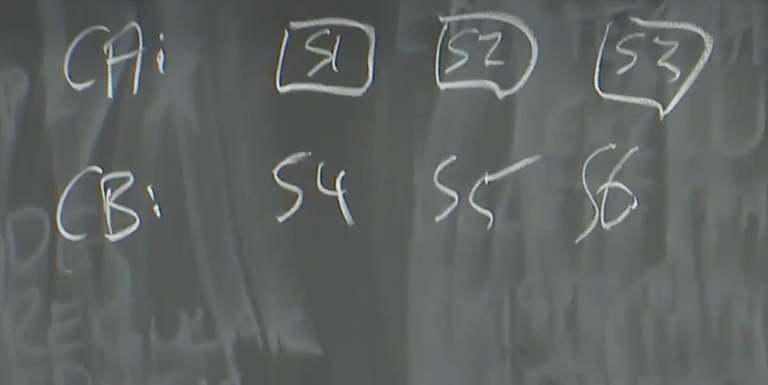 CA: S1 S2 S3
CB: S4 S5 S6